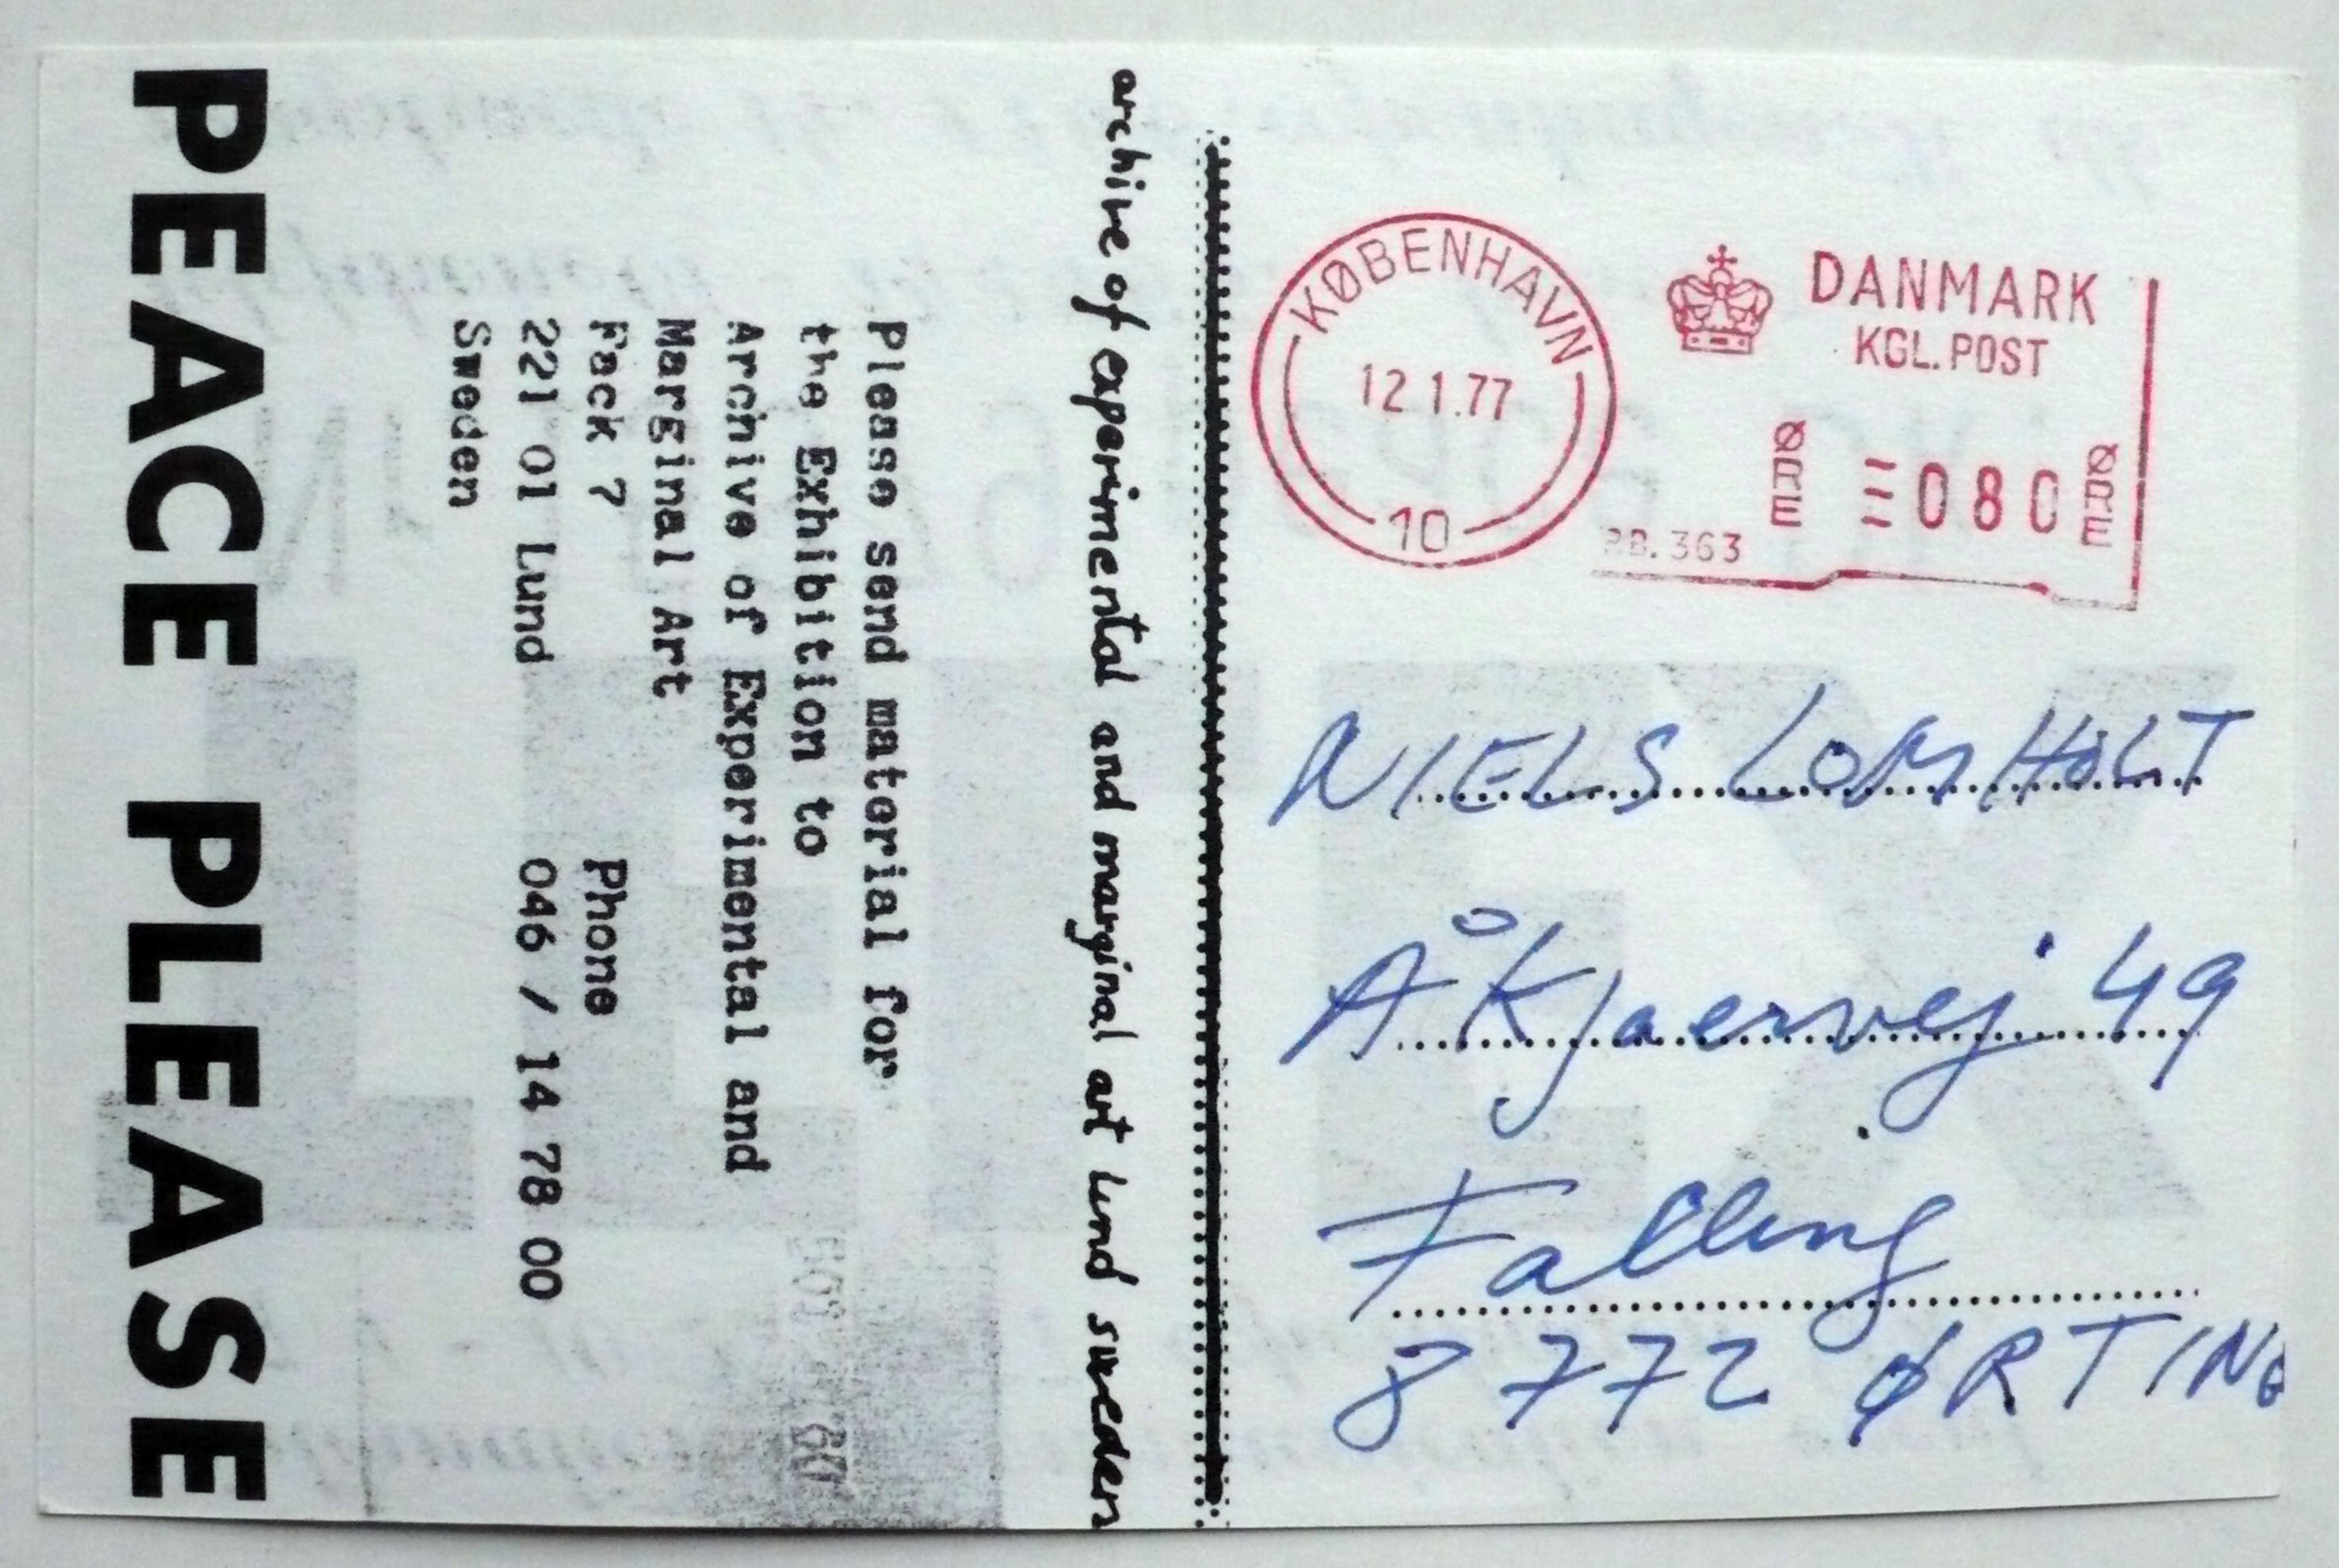 PEACE PLEASE
Please send material for
the Exhibition to
Archive of Experimental and
Marginal Art
Fack 7 Phone
221 01 Lund 046 / 14 78 00
Sweden
archive of experimental and marginal art lund sweden
KØBENHAVN
12 1.77
10
DANMARK
KGL. POST
ØRE 080 ØRE
363
NIELS LOMHOLT
Åkjaervej 49
Falling
8772 ØRTING